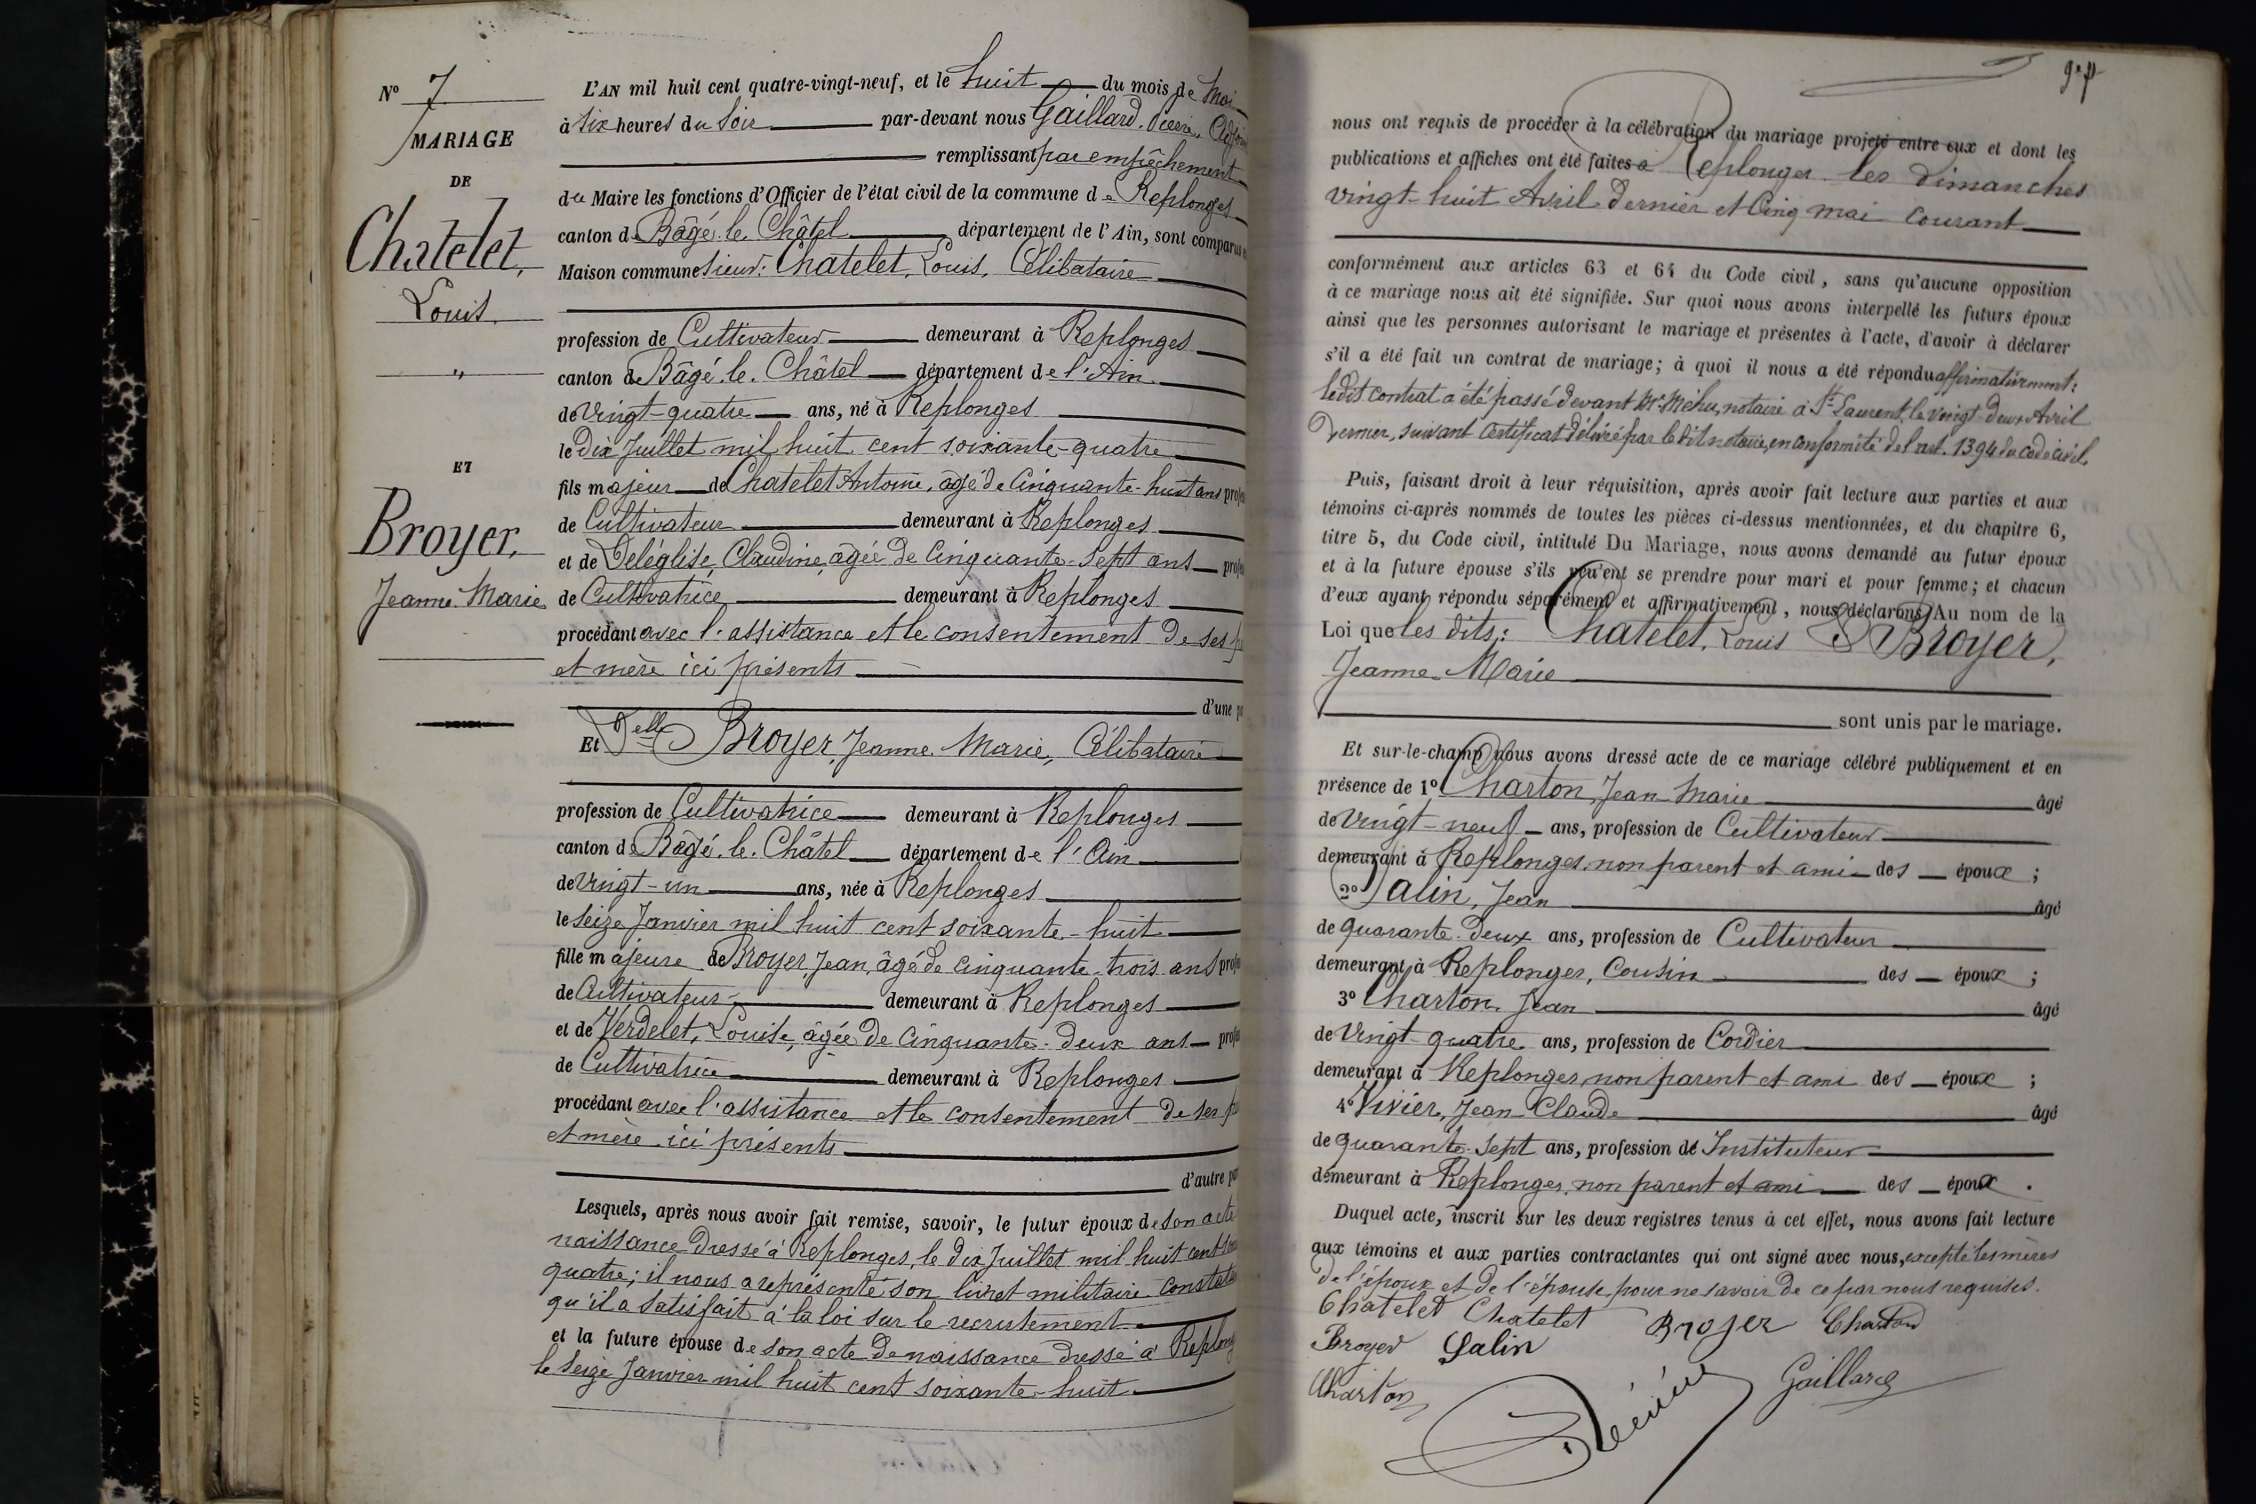 N° 7
MARIAGE
DE
Chatelet,
Louis.
"
ET
Broyer,
Jeanne Marie
L'AN mil huit cent quatre-vingt-neuf, et le huit du mois de Mai
à six heures du soir par-devant nous Gaillard, Pierre, Adjoint
remplissant par empêchement
du Maire les fonctions d'Officier de l'état civil de la commune de Replonges
canton de Bâgé-le-Châtel département de l'Ain, sont comparus
Maison commune sieur: Chatelet, Louis, Célibataire
profession de Cultivateur demeurant à Replonges
canton de Bâgé-le-Châtel département de l'Ain
de vingt-quatre ans, né à Replonges
le Dix Juillet mil huit cent soixante-quatre
fils majeur de Chatelet Antoine, âgé de Cinquante-huit ans
de Cultivateur demeurant à Replonges
et de Deléglise, Claudine, âgée de Cinquante-Sept ans
de Cultivatrice demeurant à Replonges
procédant avec l'assistance et le consentement de ses
et mère ici présents
d'une
Et Delle Broyer, Jeanne Marie, Célibataire
profession de Cultivatrice demeurant à Replonges
canton de Bâgé-le-Châtel département de l'Ain
de Vingt-un ans, née à Replonges
le Seize Janvier mil huit cent soixante-huit
fille majeure de Broyer Jean, âgé de cinquante-trois ans
de Cultivateur demeurant à Replonges
et de Verdelet, Louise, âgée de Cinquante-deux ans
de Cultivatrice demeurant à Replonges
procédant avec l'assistance et le consentement de ses
et mère ici présents
d'autre
Lesquels, après nous avoir fait remise, savoir, le futur époux de son acte
naissance dressé à Replonges, le dix Juillet mil huit cent
quatre; il nous a représenté son livret militaire
qu'il a satisfait à la loi sur le recrutement
et la future épouse de son acte de naissance dressé à
le Seize Janvier mil huit cent soixante-huit
nous ont requis de procéder à la célébration du mariage projeté entre eux et dont les
publications et affiches ont été faites à Replonges les Dimanches
vingt-huit Avril dernier et Cinq mai courant
conformément aux articles 63 et 64 du Code civil, sans qu'aucune opposition
à ce mariage nous ait été signifiée. Sur quoi nous avons interpellé les futurs époux
ainsi que les personnes autorisant le mariage et présentes à l'acte, d'avoir à déclarer
s'il a été fait un contrat de mariage; à quoi il nous a été répondu affirmativement:
ledit contrat a été passé devant Me Méhu, notaire à St Laurent le vingt-deux Avril
Dernier, suivant Certificat délivré par le dit notaire, en conformité de l'art. 1394 du code civil.
Puis, faisant droit à leur réquisition, après avoir fait lecture aux parties et aux
témoins ci-après nommés de toutes les pièces ci-dessus mentionnées, et du chapitre 6,
titre 5, du Code civil, intitulé Du Mariage, nous avons demandé au futur époux
et à la future épouse s'ils veulent se prendre pour mari et pour femme; et chacun
d'eux ayant répondu séparément et affirmativement, nous déclarons Au nom de la
Loi que les dits: Chatelet, Louis & Broyer,
Jeanne-Marie
sont unis par le mariage.
Et sur-le-champ nous avons dressé acte de ce mariage célébré publiquement et en
présence de 1° Charton, Jean-Marie âgé
de Vingt-neuf ans, profession de Cultivateur
demeurant à Replonges, non parent et ami des époux;
2° Salin, Jean âgé
de quarante-deux ans, profession de Cultivateur
demeurant à Replonges, Cousin des époux;
3° Charton, Jean âgé
de Vingt-quatre ans, profession de Cordier
demeurant à Replonges, non parent et ami des époux;
4° Vivier, Jean-Claude âgé
de quarante-sept ans, profession de Instituteur
demeurant à Replonges, non parent et ami des époux.
Duquel acte, inscrit sur les deux registres tenus à cet effet, nous avons fait lecture
aux témoins et aux parties contractantes qui ont signé avec nous, excepté les mères
de l'époux et de l'épouse pour ne savoir de ce par nous requises.
Chatelet Chatelet Broyer Charton
Broyer Salin
Charton Gaillard